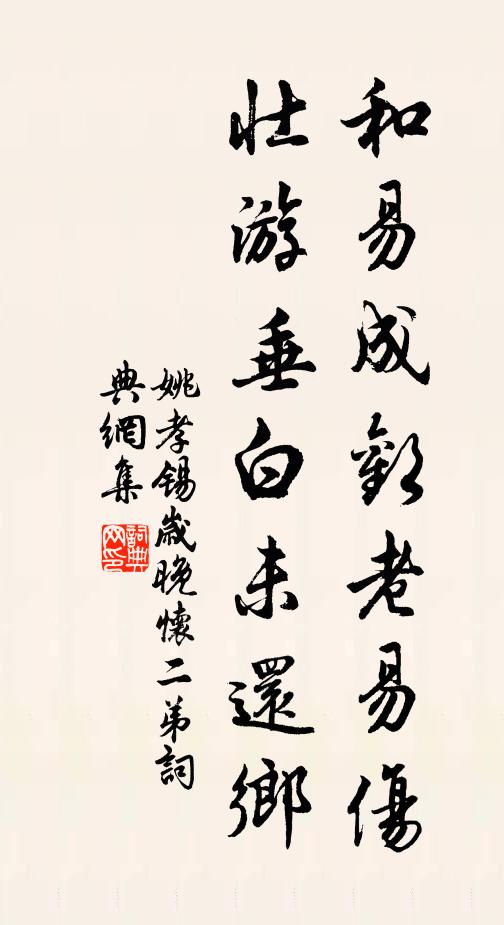 和易成歡老易傷
壮游垂白未還鄉
姚孝錫歲晚懷二弟詞
典網集
詞典
网印